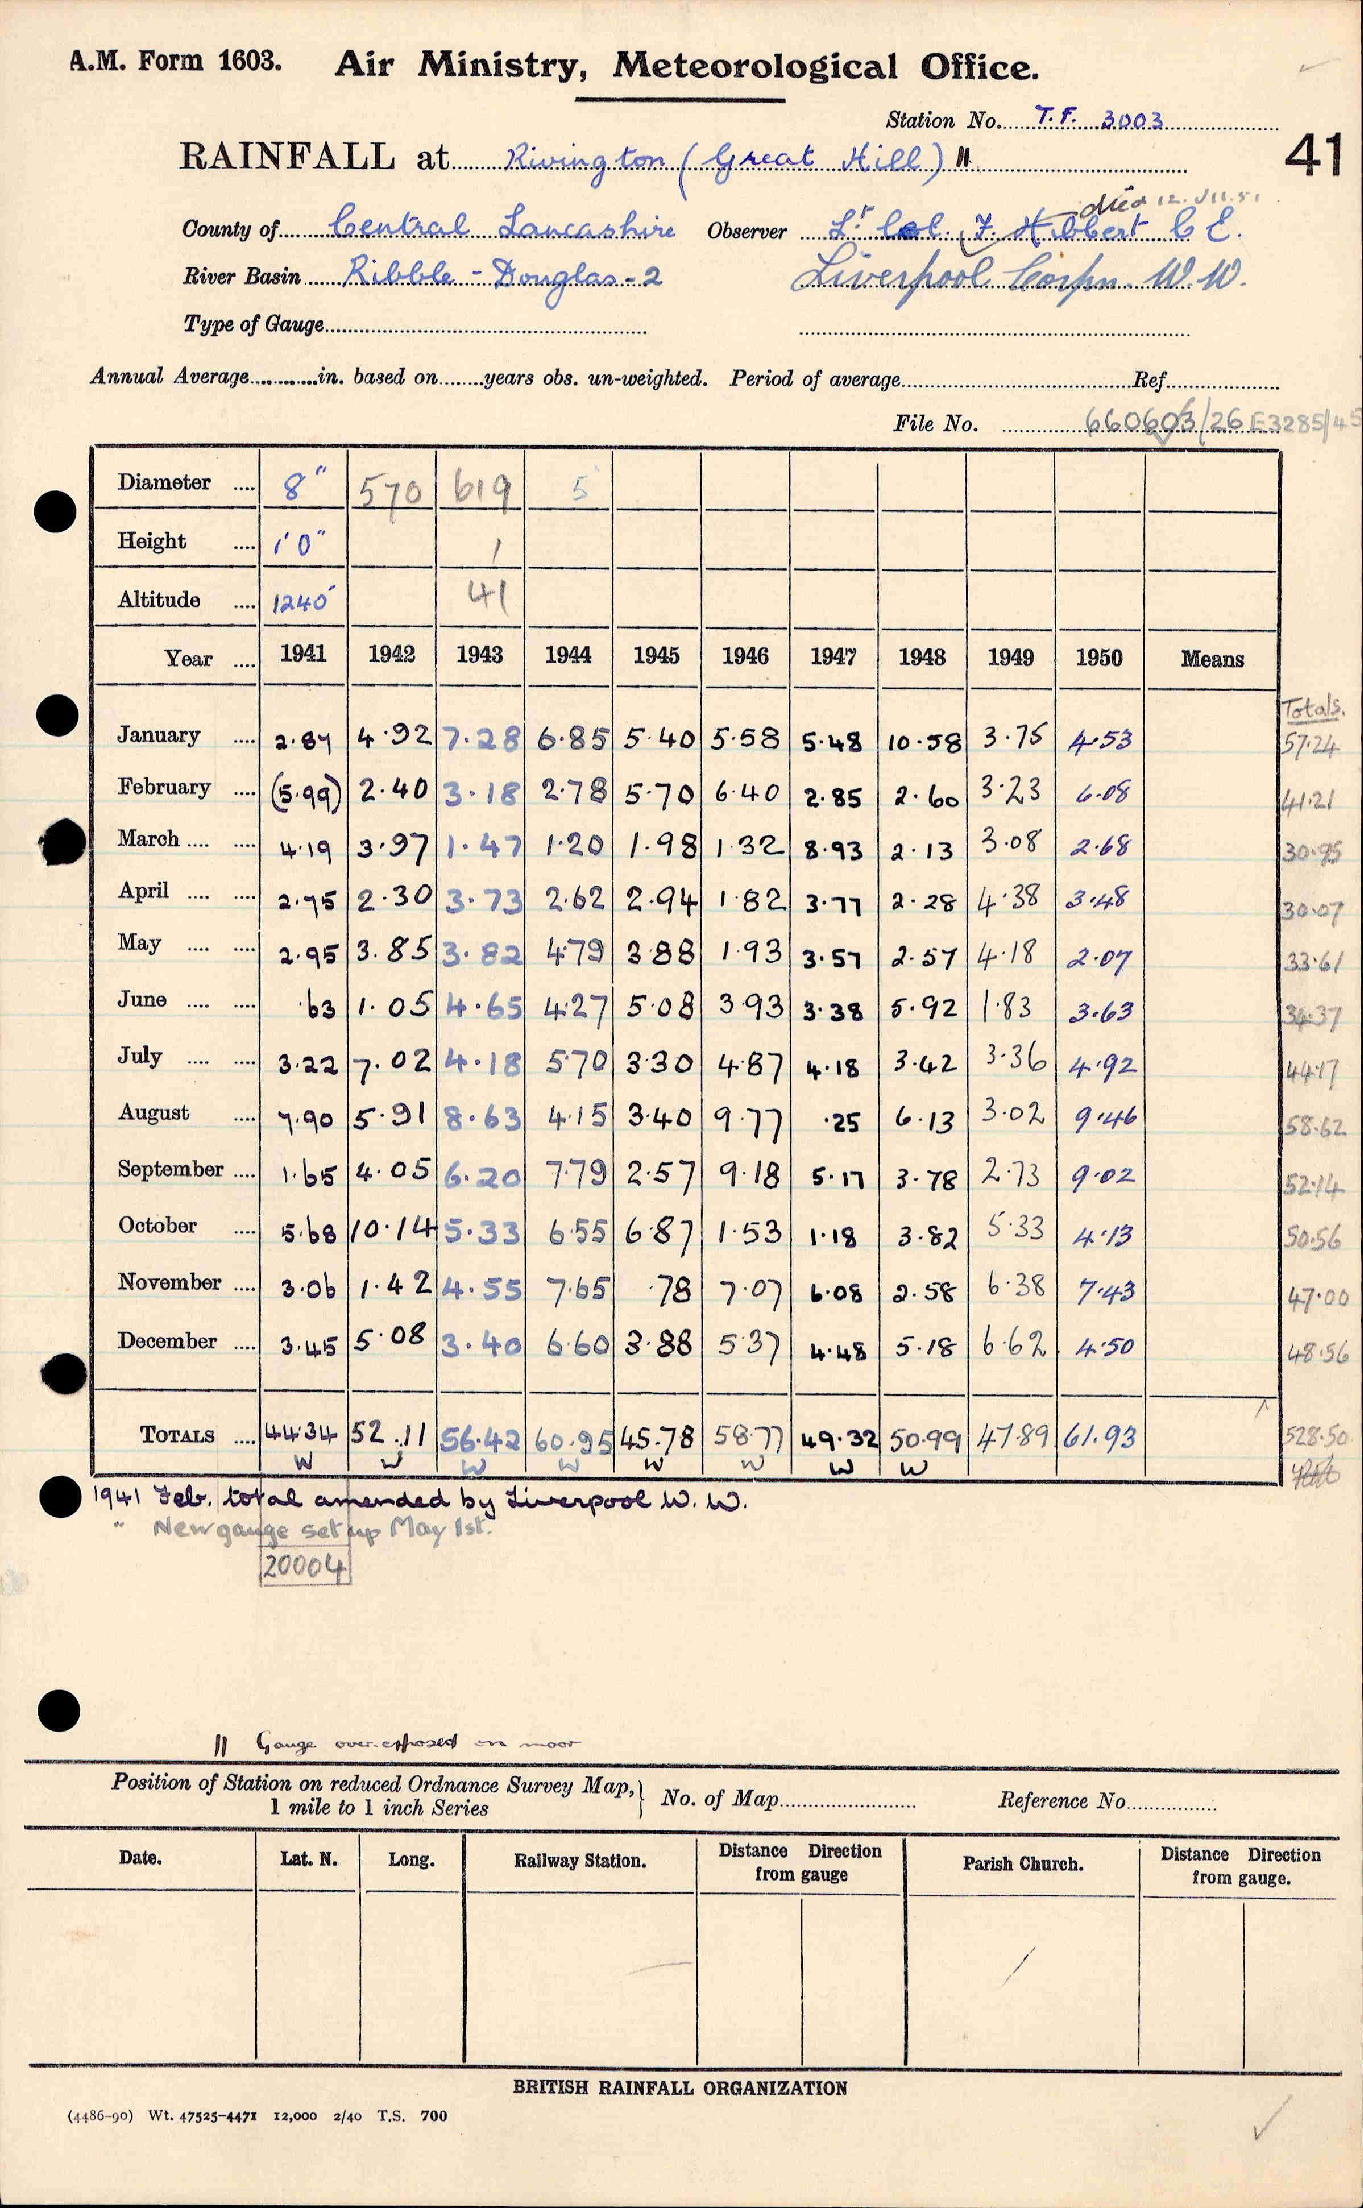 A.M. Form 1603. Air Ministry, Meteorological Office.
Station No. T.F. 3003
RAINFALL at Rivington (Great Hill) ||
41
died 12.VII.51
County of Central Lancashire Observer Lt. Col. F. Hibbert C E.
River Basin Ribble - Douglas - 2 Liverpool Corpn. W.W.
Type of Gauge
Annual Average in. based on years obs. un-weighted. Period of average Ref
File No. 660603/26 E3285/45
Diameter 8" 570 619 5
Height 1'0" 1
Altitude 1240' 41
Year 1941 1942 1943 1944 1945 1946 1947 1948 1949 1950 Means
Totals.
January 2.87 4.92 7.28 6.85 5.40 5.58 5.48 10.58 3.75 4.53 57.24
February (5.99) 2.40 3.18 2.78 5.70 6.40 2.85 2.60 3.23 6.08 41.21
March 4.19 3.97 1.47 1.20 1.98 1.32 8.93 2.13 3.08 2.68 30.95
April 2.75 2.30 3.73 2.62 2.94 1.82 3.77 2.28 4.38 3.48 30.07
May 2.95 3.85 3.82 4.79 3.88 1.93 3.57 2.57 4.18 2.07 33.61
June .63 1.05 4.65 4.27 5.08 3.93 3.38 5.92 1.83 3.63 34.37
July 3.22 7.02 4.18 5.70 3.30 4.87 4.18 3.42 3.36 4.92 44.17
August 7.90 5.91 8.63 4.15 3.40 9.77 .25 6.13 3.02 9.46 58.62
September 1.65 4.05 6.20 7.79 2.57 9.18 5.17 3.78 2.73 9.02 52.14
October 5.68 10.14 5.33 6.55 6.87 1.53 1.18 3.82 5.33 4.13 50.56
November 3.06 1.42 4.55 7.65 .78 7.07 6.08 2.58 6.38 7.43 47.00
December 3.45 5.08 3.40 6.60 3.88 5.37 4.48 5.18 6.62 4.50 48.56
TOTALS 44.34 52.11 56.42 60.95 45.78 58.77 49.32 50.99 47.89 61.93 528.50
W W W W W W W W
1941 Feb. total amended by Liverpool W.W.
" New gauge set up May 1st.
20004
|| Gauge over-exposed on moor
Position of Station on reduced Ordnance Survey Map, 1 mile to 1 inch Series } No. of Map Reference No
Date. Lat. N. Long. Railway Station. Distance Direction from gauge Parish Church. Distance Direction from gauge.
BRITISH RAINFALL ORGANIZATION
(4486-90) Wt. 47525-4471 12,000 2/40 T.S. 700